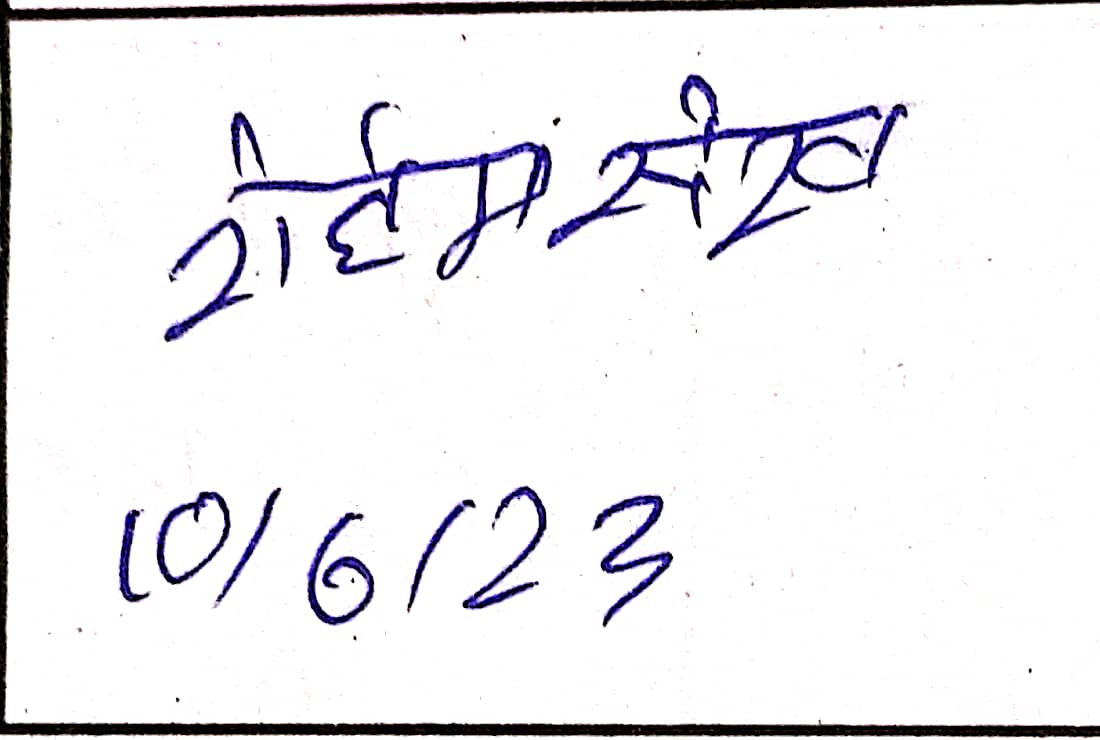 रोहेम सेख
10/6/23